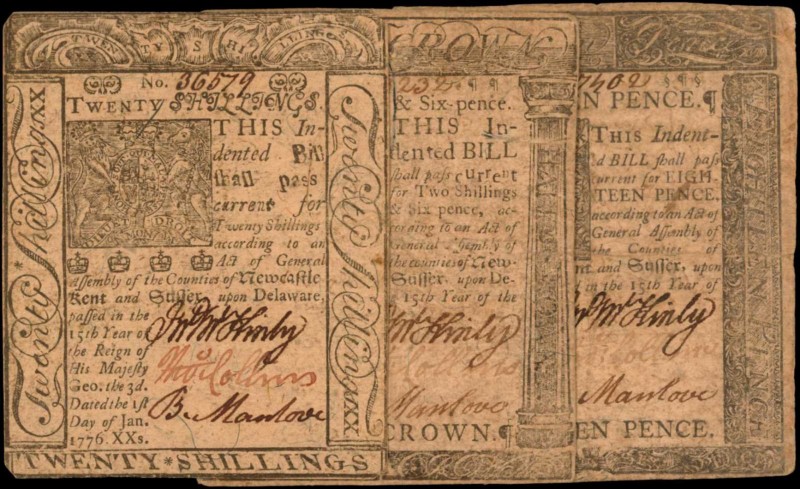 TWENTY SHILLINGS
No. 36579
TWENTY SHILLINGS.
THIS In-
dented Bill
shall pass
current for
Twenty Shillings
according to an
Act of General
Assembly of the Counties of Newcastle
Kent and Sussex, upon Delaware,
passed in the
15th Year of
the Reign of
His Majesty
Geo. the 3d.
Dated the 1st
Day of Jan.
1776. XXs.
Jno McKinly
Thos Collins
B. Manlove
TWENTY*SHILLINGS
Twenty Shilling XX
Twenty Shilling XX
CROWN
232
& Six-pence.
THIS In-
dented BILL
shall pass current
for Two Shillings
& Six pence, ac-
cording to an Act of
General Assembly of
the counties of New-
Sussex, upon De-
15th Year of the
McKinly
Collins
Manlove
CROWN.¶
7402 §¶§
N PENCE.¶
THIS Indent-
d BILL shall pass
current for EIGH-
TEEN PENCE.
according to an Act of
General Assembly of
the Counties of
nt and Sussex, upon
d in the 15th Year of
McKinly
Collins
Manlove
EEN PENCE.